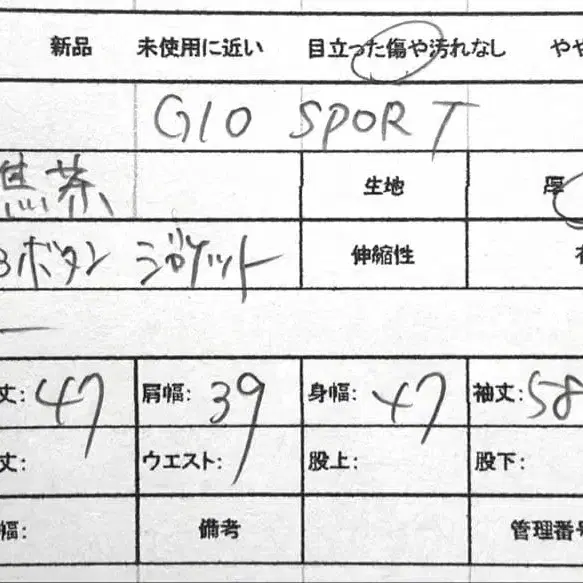 新品 未使用に近い 目立った傷や汚れなし やや
GIO SPORT
焦茶 生地 厚
3ボタン ジャケット 伸縮性
丈: 47 肩幅: 39 身幅: 47 袖丈: 58
丈: ウエスト: 股上: 股下:
幅: 備考 管理番号